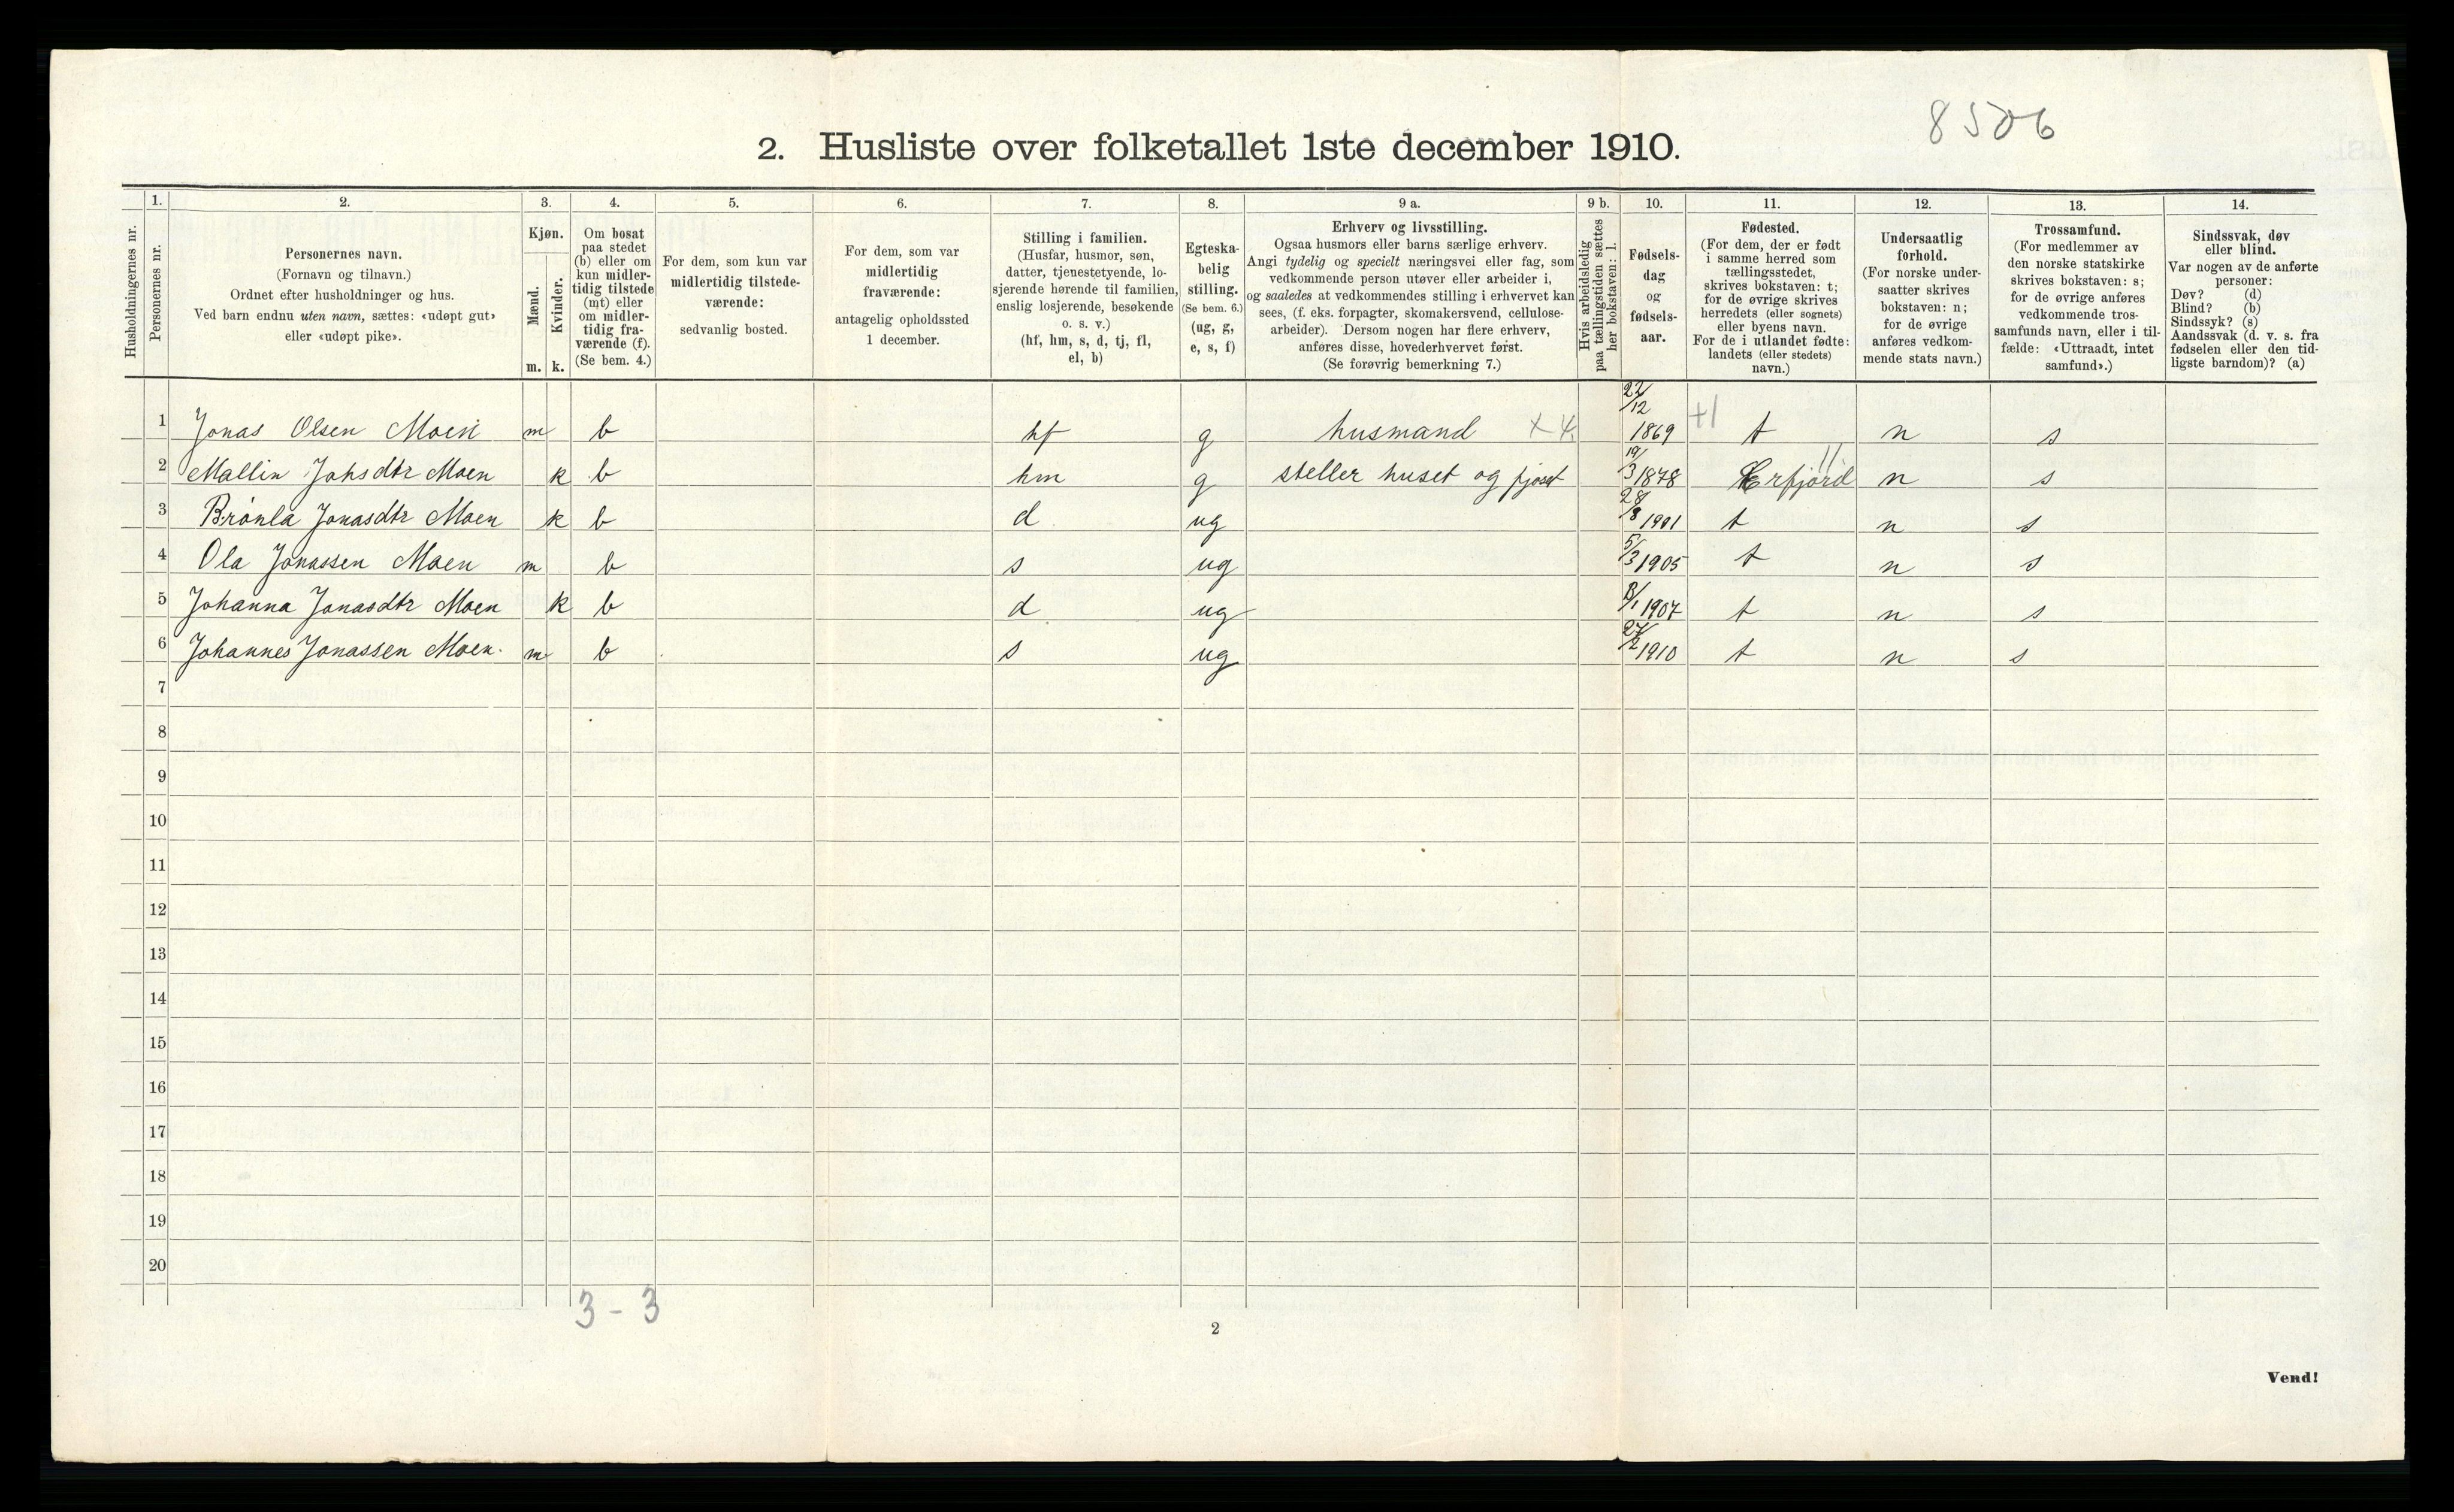 8506
2. Husliste over folketallet 1ste december 1910.
Husholdningernes nr.
1.
Personernes nr.
2.
Personernes navn.
(Fornavn og tilnavn.)
Ordnet efter husholdninger og hus.
Ved barn endnu uten navn, sættes: «udøpt gut»
eller «udøpt pike».
3.
Kjøn.
Mænd.
Kvinder.
m. k.
4.
Om bosat
paa stedet
(b) eller om
kun midler-
tidig tilstede
(mt) eller
om midler-
tidig fra-
værende (f).
(Se bem. 4.)
5.
For dem, som kun var
midlertidig tilstede-
værende:
sedvanlig bosted.
6.
For dem, som var
midlertidig
fraværende:
antagelig opholdssted
1 december.
7.
Stilling i familien.
(Husfar, husmor, søn,
datter, tjenestetyende, lo-
sjerende hørende til familien,
enslig losjerende, besøkende
o. s. v.)
(hf, hm, s, d, tj, fl,
el, b)
8.
Egteska-
belig
stilling.
(Se bem. 6.)
(ug, g,
e, s, f)
9 a.
Erhverv og livsstilling.
Ogsaa husmors eller barns særlige erhverv.
Angi tydelig og specielt næringsvei eller fag, som
vedkommende person utøver eller arbeider i,
og saaledes at vedkommendes stilling i erhvervet kan
sees, (f. eks. forpagter, skomakersvend, cellulose-
arbeider). Dersom nogen har flere erhverv,
anføres disse, hovederhvervet først.
(Se forøvrig bemerkning 7.)
9 b.
Hvis arbeidsledig
paa tællingstiden sættes
her bokstaven: l.
10.
Fødsels-
dag
og
fødsels-
aar.
11.
Fødested.
(For dem, der er født
i samme herred som
tællingsstedet,
skrives bokstaven: t;
for de øvrige skrives
herredets (eller sognets)
eller byens navn.
For de i utlandet fødte:
landets (eller stedets)
navn.)
12.
Undersaatlig
forhold.
(For norske under-
saatter skrives
bokstaven: n;
for de øvrige
anføres vedkom-
mende stats navn.)
13.
Trossamfund.
(For medlemmer av
den norske statskirke
skrives bokstaven: s;
for de øvrige anføres
vedkommende tros-
samfunds navn, eller i til-
fælde: «Uttraadt, intet
samfund».)
14.
Sindssvak, døv
eller blind.
Var nogen av de anførte
personer:
Døv? (d)
Blind? (b)
Sindssyk? (s)
Aandssvak (d. v. s. fra
fødselen eller den tid-
ligste barndom)? (a)
1 Jonas Olsen Moen m b hf g husmand 22/12 1869 +1 t n s
2 Mallin Johsdtr Moen k b hm g steller huset og fjøset 19/3 1878 Erfjord n s
3 Brønla Jonasdtr Moen k b d ug 28/8 1901 t n s
4 Ola Jonassen Moen m b s ug 5/3 1905 t n s
5 Johanna Jonasdtr Moen k b d ug 8/1 1907 t n s
6 Johannes Jonassen Moen. m b s ug 27/2 1910 t n s
7
8
9
10
11
12
13
14
15
16
17
18
19
20
3 - 3
2
Vend!